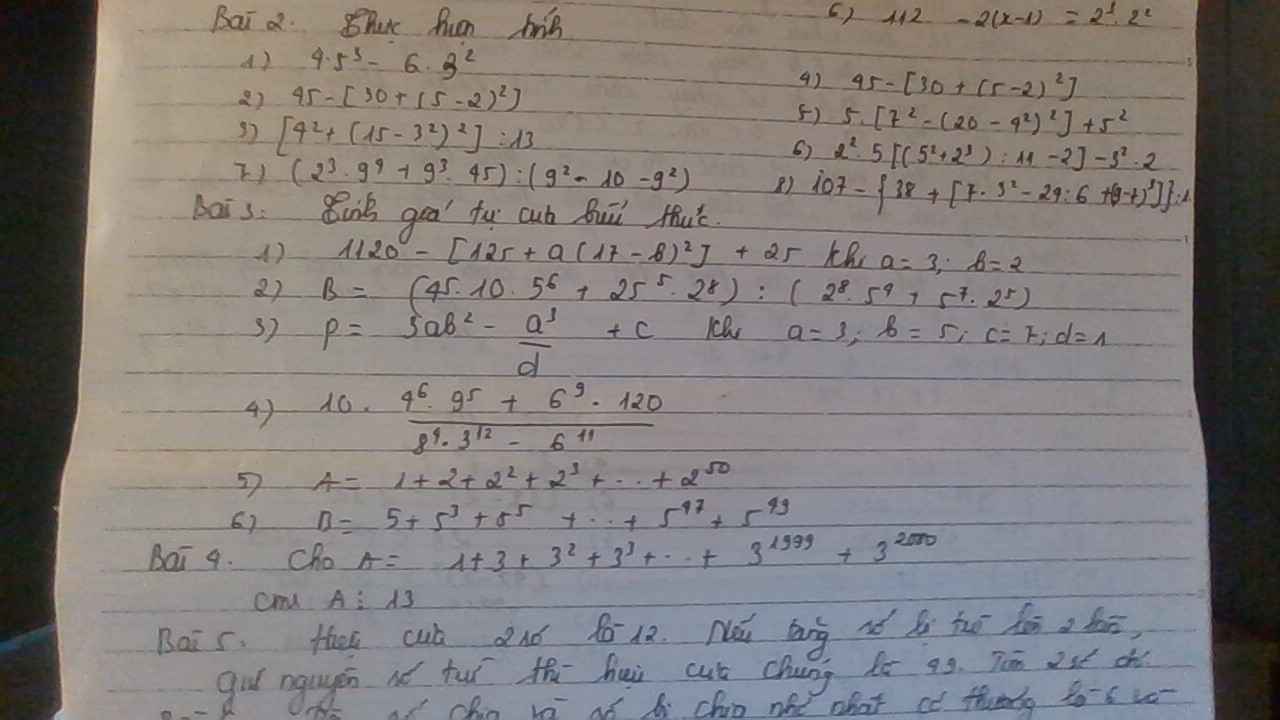 Bài 2. Thực hiện tính 6) 112 - 2(x-1) = 2³.2²
1) 4.5³ - 6.3²
4) 45 - [30 + (5-2)²]
2) 45 - [30 + (5-2)²]
5) 5.[7² - (20 - 4²)²] + 5²
3) [4² + (15 - 3²)²] : 13
6) 2².5[(5²+2³) : 11 - 2] - 3².2
7) (2³.9⁴ + 9³.45) : (9².10 - 9²)
8) 107 - {38 + [7.3² - 24:6 + (9-7)³]} : 1
Bài 3: Tính giá trị của biểu thức.
1) 1120 - [125 + a(17 - b)²] + 25 khi a = 3; b = 2
2) B = (45.10.5⁶ + 25⁵.2⁸) : (2⁸.5⁴ + 5⁷.2⁵)
3) P = 3ab² - a³/d + c khi a = 3; b = 5; c = 7; d = 1
4) 10. (4⁶.9⁵ + 6⁹.120)/(8⁴.3¹² - 6¹¹)
5) A = 1 + 2 + 2² + 2³ + ... + 2⁵⁰
6) B = 5 + 5³ + 5⁵ + ... + 5⁴⁷ + 5⁴⁹
Bài 4. Cho A = 1 + 3 + 3² + 3³ + ... + 3¹⁹⁹⁹ + 3²⁰⁰⁰
CM A ⋮ 13
Bài 5. Hiệu của 2 số là 12. Nếu tăng số bị trừ lên 2 lần,
giữ nguyên số trừ thì hiệu của chúng là 49. Tìm 2 số đó.
số chia và số bị chia nhỏ nhất có thương là 6 và